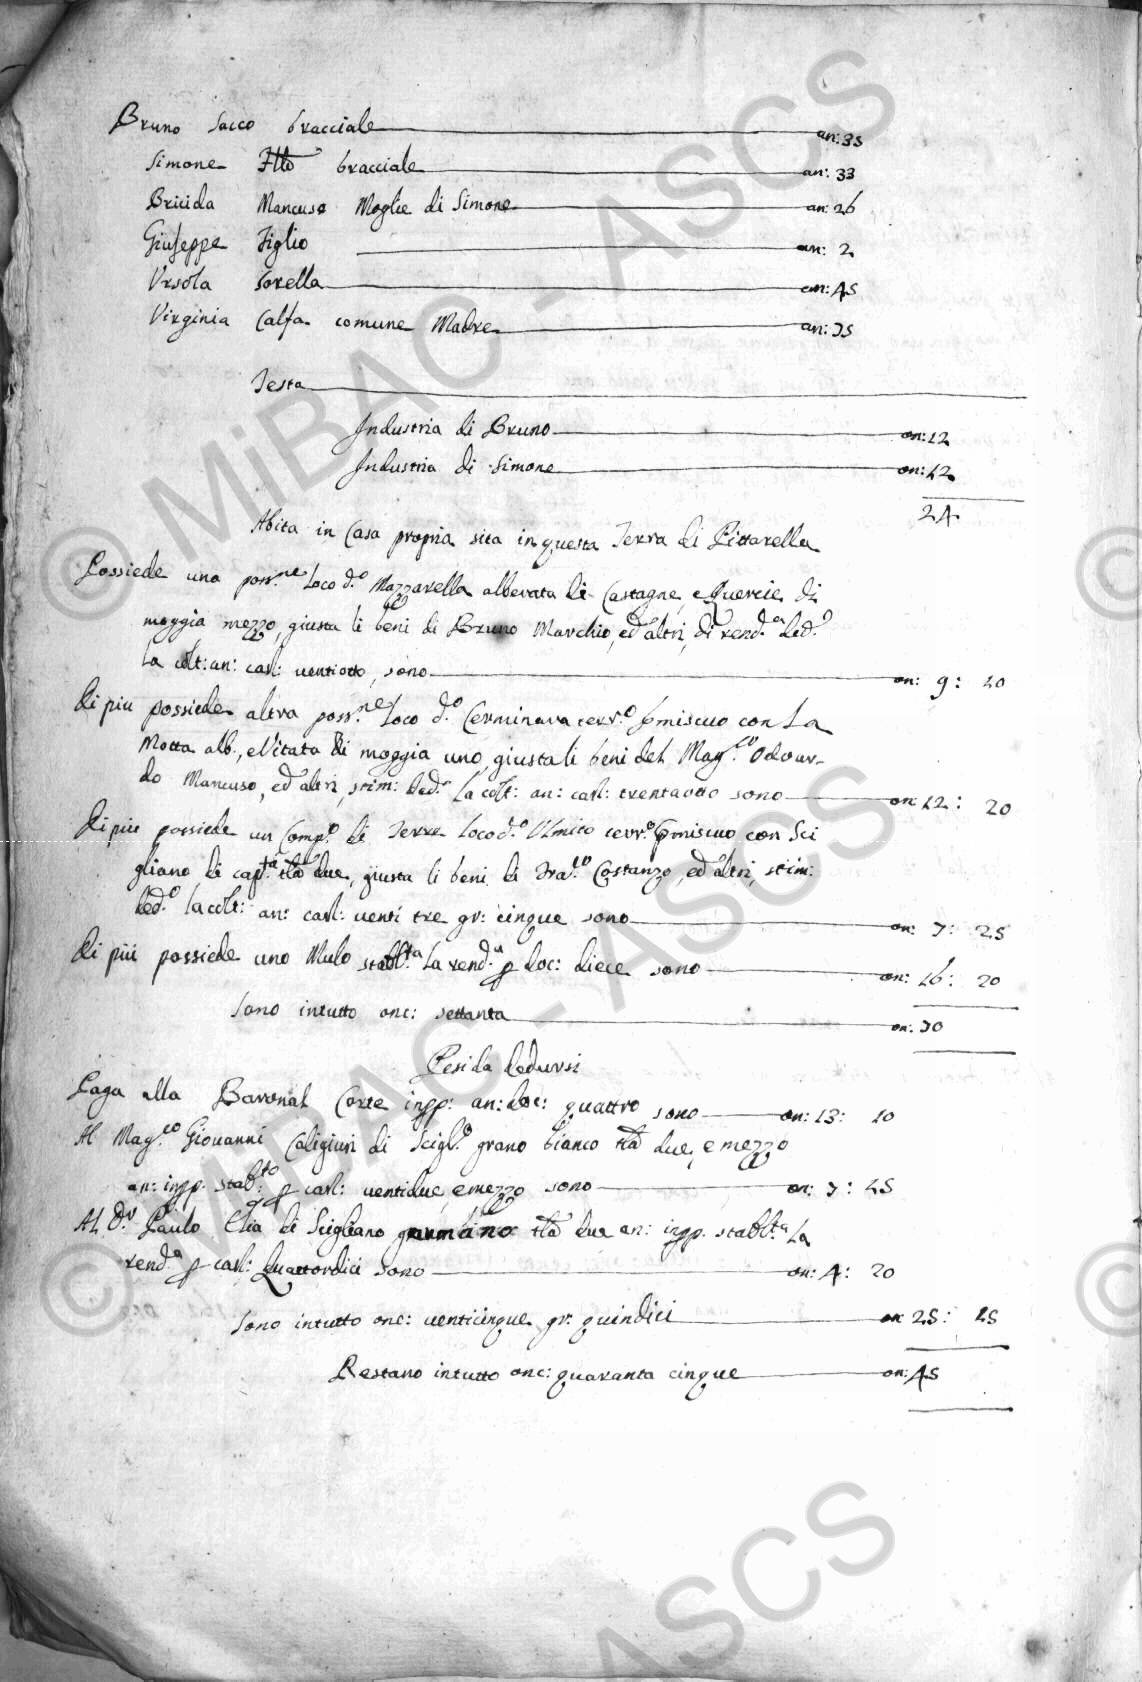 Bruno Sacco bracciale an: 35
Simone Fllo bracciale an: 33
Bricida Mancuso Moglie di Simone an: 26
Giuseppe Figlio an: 2
Ursola sorella an: 45
Virginia Calfa comune Madre an: 75
Testa
Industria di Bruno on: 12
Industria di Simone on: 12
24
Abita in Casa propria sita in questa Terra di Pittarella
Possiede una poss.ne loco d.o Mazzarella alberata di Castagne, e Quercie di
moggia mezzo, giusta li beni di Bruno Marchio, ed altri, di rend.a ded.o
la colt: an: carl: ventiotto, sono on: 9: 10
di piu possiede altra poss.ne loco d.o Cerminara terr.o promiscuo con la
Motta alb., e Vitata di moggia uno, giusta li beni del Mag.co Odoar-
do Mancuso, ed altri, stim: ded.o la colt: an: carl: trentaotto sono on 12: 20
di piu possiede un Comp.o di Terre loco d.o Ulmito terr.o promiscuo con Sci
gliano di cap.tà tta due, giusta li beni di Fra.co Costanzo, ed altri, stim:
ded.o la colt: an: carl: venti tre gr: cinque sono on: 7: 25
di più possiede uno Mulo stabl.ta la rend.a p doc: diece sono on: 16: 20
Sono intutto onc: settanta on: 70
Pesi da dedursi
Paga alla Baronal Corte inpp: an: doc: quattro sono on: 13: 10
Al Mag.co Giovanni Caligiuri di Scigl.o grano bianco tta due, e mezzo
an: inpp. stab.to p carl: ventidue, e mezzo sono on: 7: 15
Al D.r Paulo Elia di Scigliano germano tta due an: inpp. stabl.ta la
rend.a p carl: Quattordici sono on: 4: 20
Sono intutto onc: venticinque gr: quindici on 25: 15
Restano intutto onc: quaranta cinque on: 45
© MiBAC - ASCS
© MiBAC - ASCS
ASCS
©
©